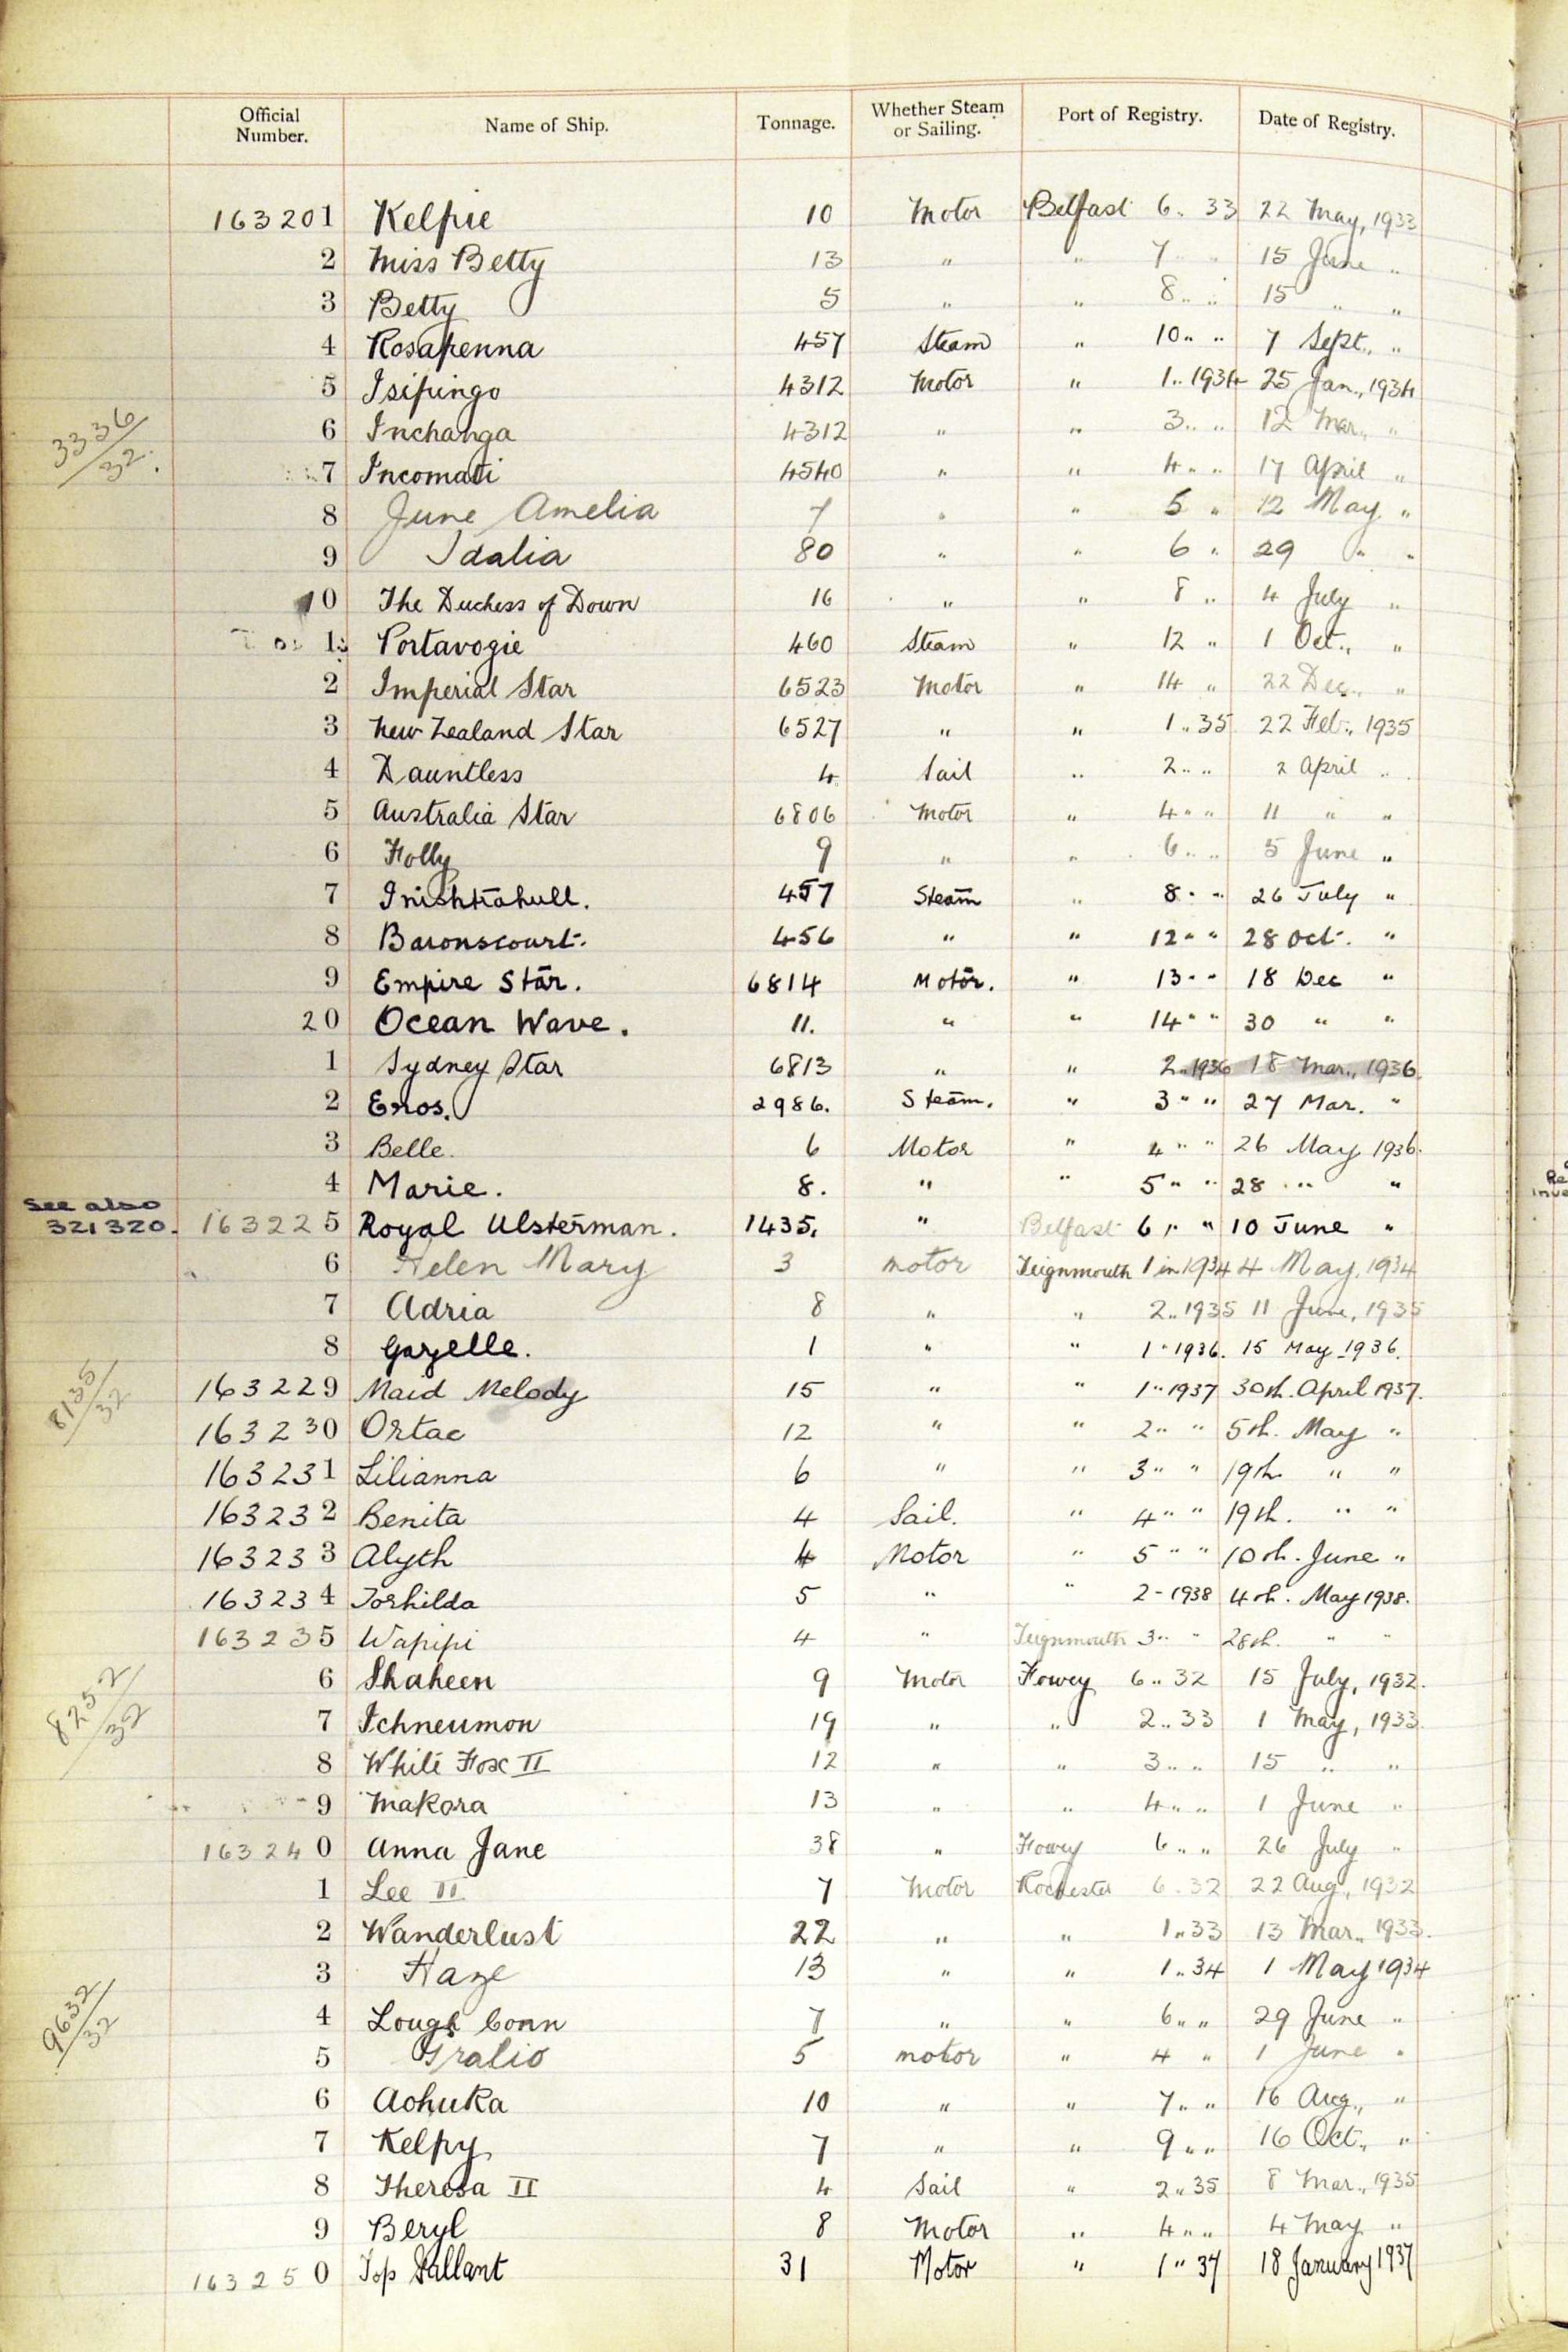 Official Number. Name of Ship. Tonnage. Whether Steam or Sailing. Port of Registry. Date of Registry.
163201 Kelpie 10 Motor Belfast 6 .. 33 22 May, 1933
2 Miss Betty 13 " " 7 " " 15 June "
3 Betty 5 " " 8 " " 15 " "
4 Rosapenna 457 Steam " 10 " " 7 Sept., "
5 Isipingo 4312 Motor " 1 .. 1934 25 Jan., 1934
3336/32. 6 Inchanga 4312 " " 3 " " 12 Mar., "
7 Incomati 4540 " " 4 " " 17 April "
8 June Amelia 7 " " 5 " 12 May "
9 Idalia 80 " " 6 " 29 " "
10 The Duchess of Down 16 " " 8 " 4 July "
1 Portavogie 460 Steam " 12 " 1 Oct., "
2 Imperial Star 6523 Motor " 14 " 22 Dec., "
3 New Zealand Star 6527 " " 1 .. 35 22 Feb., 1935
4 Dauntless 4 Sail " 2 " " 2 April "
5 Australia Star 6806 Motor " 4 " " 11 " "
6 Folly 9 " " 6 " " 5 June "
7 Inishtrahull. 457 Steam " 8 " " 26 July "
8 Baronscourt. 456 " " 12 " " 28 Oct. "
9 Empire Star. 6814 Motor. " 13 " " 18 Dec "
20 Ocean Wave. 11. " " 14 " " 30 " "
1 Sydney Star 6813 " " 2 .. 1936 18 Mar., 1936.
2 Enos. 2986. Steam. " 3 " " 27 Mar. "
3 Belle. 6 Motor " 4 " " 26 May 1936.
4 Marie. 8. " " 5 " " 28 " "
See also 321320. 163225 Royal Ulsterman. 1435. " Belfast 6 " " 10 June "
6 Helen Mary 3 motor Teignmouth 1 in 1934 4 May, 1934
7 Adria 8 " " 2 .. 1935 11 June, 1935
8 Gazelle. 1 " " 1 " 1936. 15 May 1936.
8135/32 163229 Maid Melody 15 " " 1 " 1937 30th. April 1937.
163230 Ortac 12 " " 2 " " 5th. May "
163231 Lilianna 6 " " 3 " " 19th " "
163232 Benita 4 Sail. " 4 " " 19th. " "
163233 Alyth 4 Motor " 5 " " 10th. June "
163234 Torhilda 5 " " 2 - 1938 4th. May 1938.
163235 Wapipi 4 " Teignmouth 3 " " 28th. " "
8252/32 6 Shaheen 9 Motor Fowey 6 .. 32 15 July, 1932.
7 Ichneumon 19 " " 2 .. 33 1 May, 1933.
8 White Fox II 12 " " 3 " " 15 " "
9 Makora 13 " " 4 " " 1 June "
163240 Anna Jane 38 " Fowey 6 " " 26 July "
1 Lee II 7 Motor Rochester 6 . 32 22 Aug., 1932
2 Wanderlust 22 " " 1 .. 33 13 Mar., 1933.
3 Haze 13 " " 1 .. 34 1 May 1934
9632/32 4 Lough Conn 7 " " 6 " " 29 June "
5 5 motor " 4 " 1 June "
6 Aohuka 10 " " 7 " " 16 Aug., "
7 Kelpy 7 " " 9 " " 16 Oct., "
8 Theresa II 4 Sail " 2 .. 35 8 Mar., 1935
9 Beryl 8 Motor " 4 " " 4 May "
163250 Top Gallant 31 Motor " 1 " 37 18 January 1937